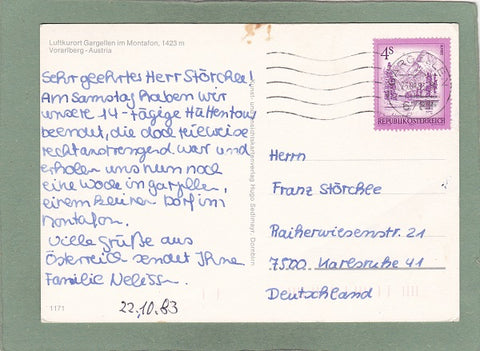 Luftkurort Gargellen im Montafon, 1423 m
Vorarlberg - Austria
Sehr geehrter Herr Störchle!
Am Samstag haben wir
unsere 14-tägige Hüttentour
beendet, die doch teilweise
recht anstrengend war und
erholen uns nun noch
eine Woche in Gargellen,
einem kleinen Dorf im
Montafon.
Viele Grüße aus
Österreich sendet Ihnen
Familie
22.10.83
1171
Hugo Sedlmayr, Dornbirn
4 S
REPUBLIK ÖSTERREICH
Herrn
Franz Störchle
Reiherwiesenstr. 21
7500 Karlsruhe 41
Deutschland